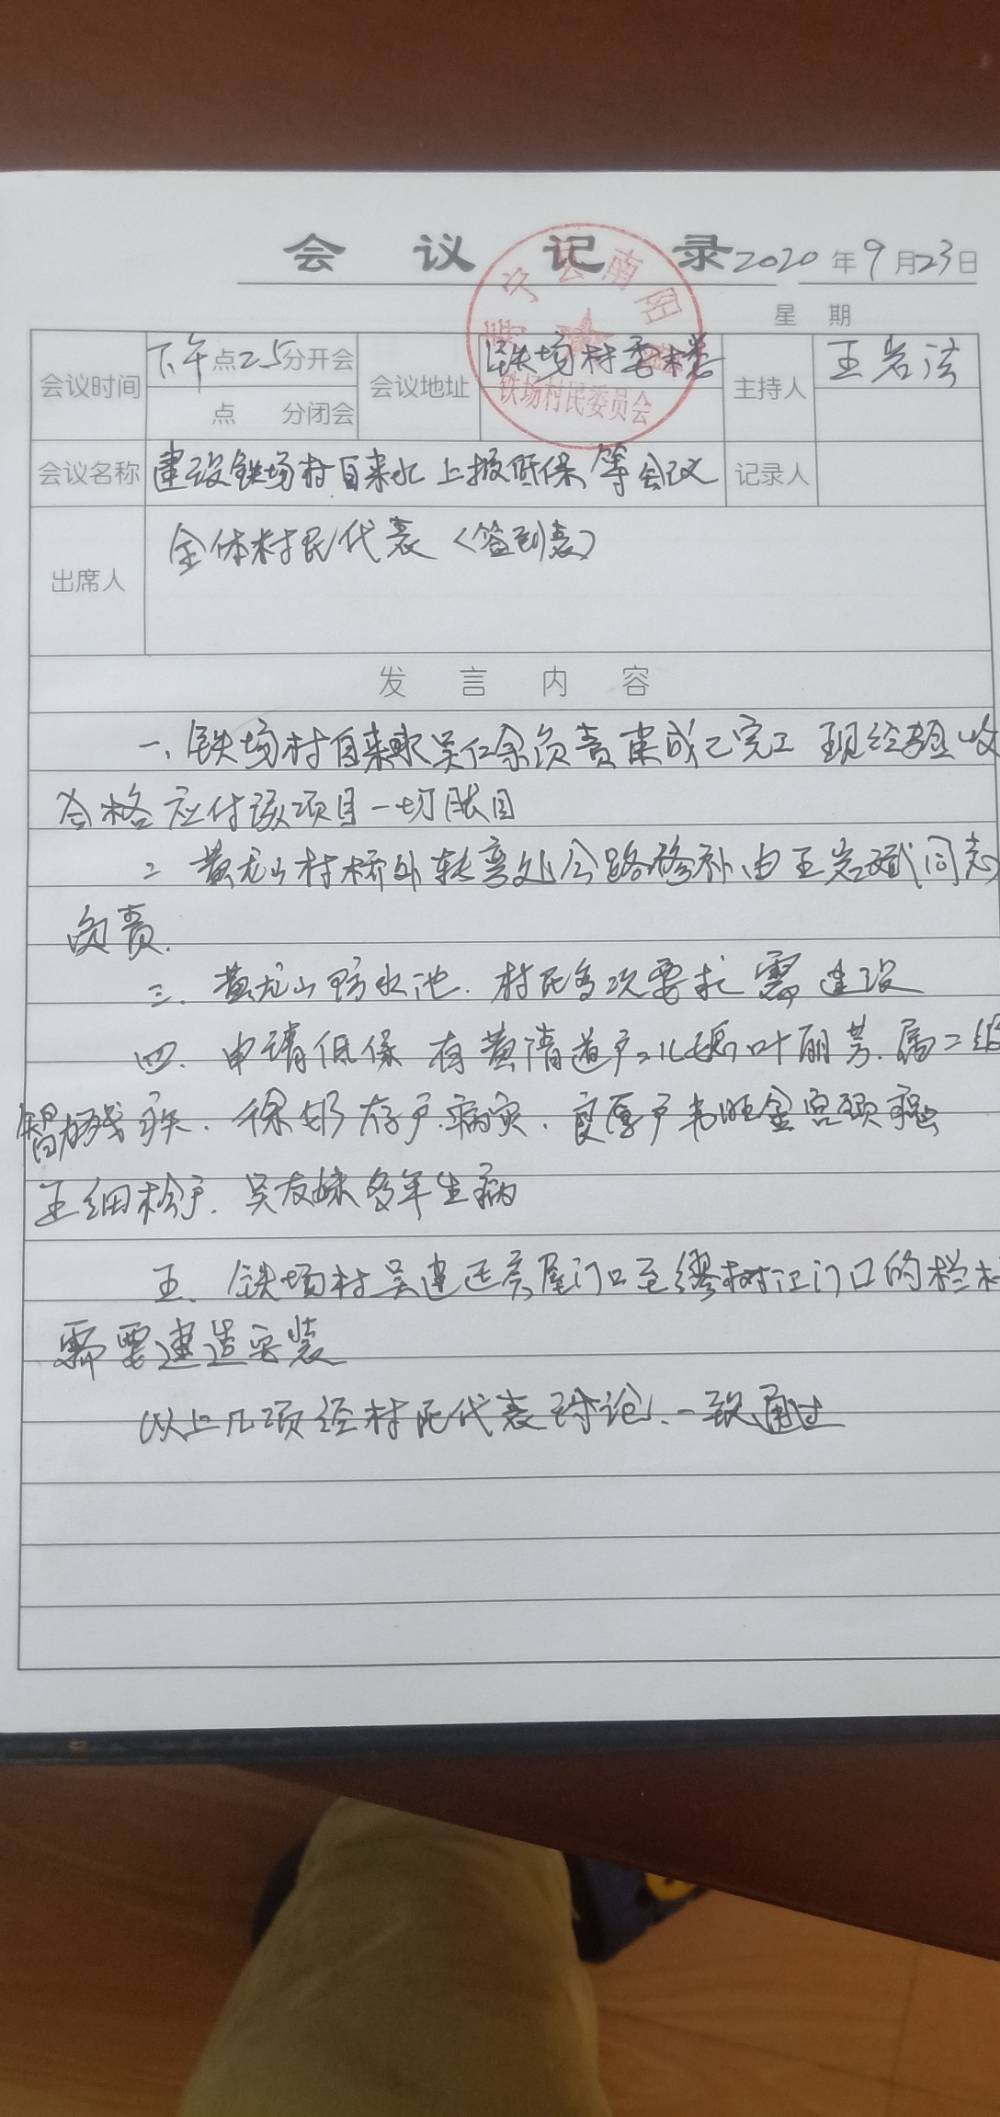 会议记录 2020年9月23日
星期
会议时间 下午点25分开会 会议地址 铁场村委楼 主持人 王岩法
点 分闭会
宁县南阳
铁场村民委员会
会议名称 建设铁场村自来水上报低保等会议 记录人
出席人 全体村民代表（签到表）
发言内容
一、铁场村自来水吴仁余负责 已完工 现经验收
合格应付该项目一切账目
二 黄龙山村桥外转弯处公路修补由王岩斌同志
负责.
三. 黄龙山防水池. 村民多次要求需建设
四. 申请低保 有黄清道户二儿媳叶丽芳.属二级
智力残疾. 徐 存户.病灾. 户韦旺金
王细松户. 吴友妹多年生病
五. 铁场村吴建 房屋门口至缪树江门口的栏
需要建造安装
以上几项经村民代表讨论.一致通过